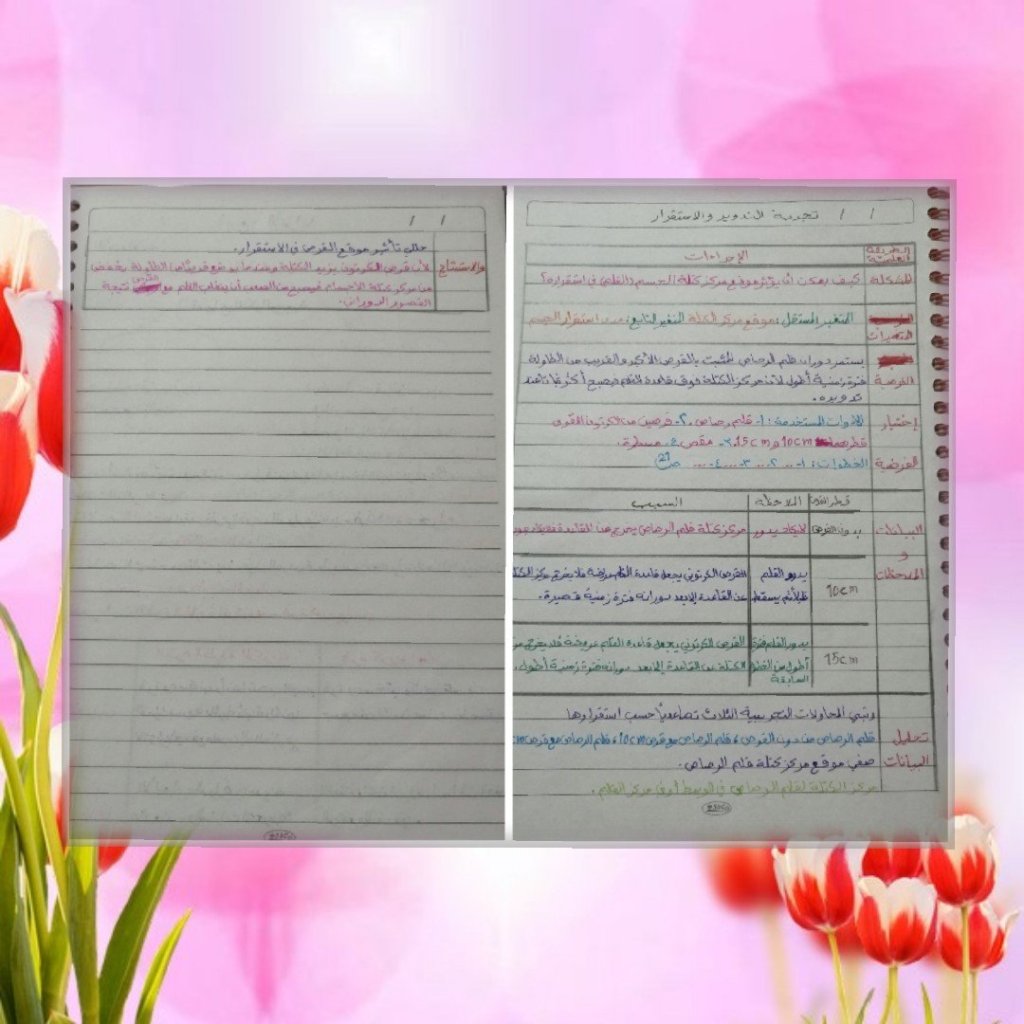 / / تجربة التدوير والاستقرار
الطريقة العلمية
الإجراءات
المشكلة
كيف يمكن أن يؤثر موقع مركز كتلة الجسم (القلم) في استقراره؟
المتغيرات
المتغير المستقل: موقع مركز الكتلة المتغير التابع: مدى استقرار الجسم
الفرضية
يستمر دوران قلم الرصاص المثبت بالقرص الأكبر والقريب من الطاولة
فترة زمنية أطول لأن مركز الكتلة فوق قاعدة القلم فيصبح أكثر ثباتا عند
تدويره.
إختبار
الأدوات المستخدمة: ١- قلم رصاص. ٢- قرصين من الكرتون القوي
قطر 10cm و 15cm .٣- مقص. ٤- مسطرة.
الفرضية
الخطوات: ١- ... ٢- ... ٣- ... ٤- ... ص 21
قطر القرص الملاحظة السبب
البيانات
و
الملاحظات
بدون القرص
لا يكاد يدور
مركز كتلة قلم الرصاص يخرج عن القاعدة
10cm
يدور القلم
قليلا ثم يسقط
القرص الكرتوني يجعل قاعدة القلم عريضة فلا يخرج مركز الكتلة
عن القاعدة إلا بعد دورانه فترة زمنية قصيرة.
15cm
يدور القلم فترة
أطول من الفترة
السابقة
القرص الكرتوني يجعل قاعدة القلم عريضة فلا يخرج
الكتلة عن القاعدة إلا بعد دورانه فترة زمنية أطول.
تحليل
البيانات
رتبي المحاولات التجريبية الثلاث تصاعدياً حسب استقرارها
قلم الرصاص من دون القرص، قلم الرصاص مع قرص 10cm، قلم الرصاص مع قرص
صفي موقع مركز كتلة قلم الرصاص.
مركز الكتلة لقلم الرصاص في الوسط أو في مركز القلم.
/ /
والاستنتاج
حللي تأثير موقع القرص في الاستقرار.
لأن قرص الكرتون يزيد الكتلة وعندما يوضع قريباً من الطاولة يخفض
من مركز كتلة الأجسام فيصبح من الصعب أن ينقلب القلم مع القرص نتيجة
القصور الدوراني.